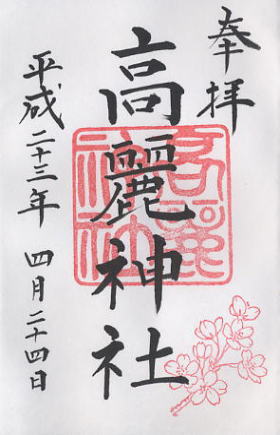 奉拝
高麗神社
平成二十三年 四月二十四日